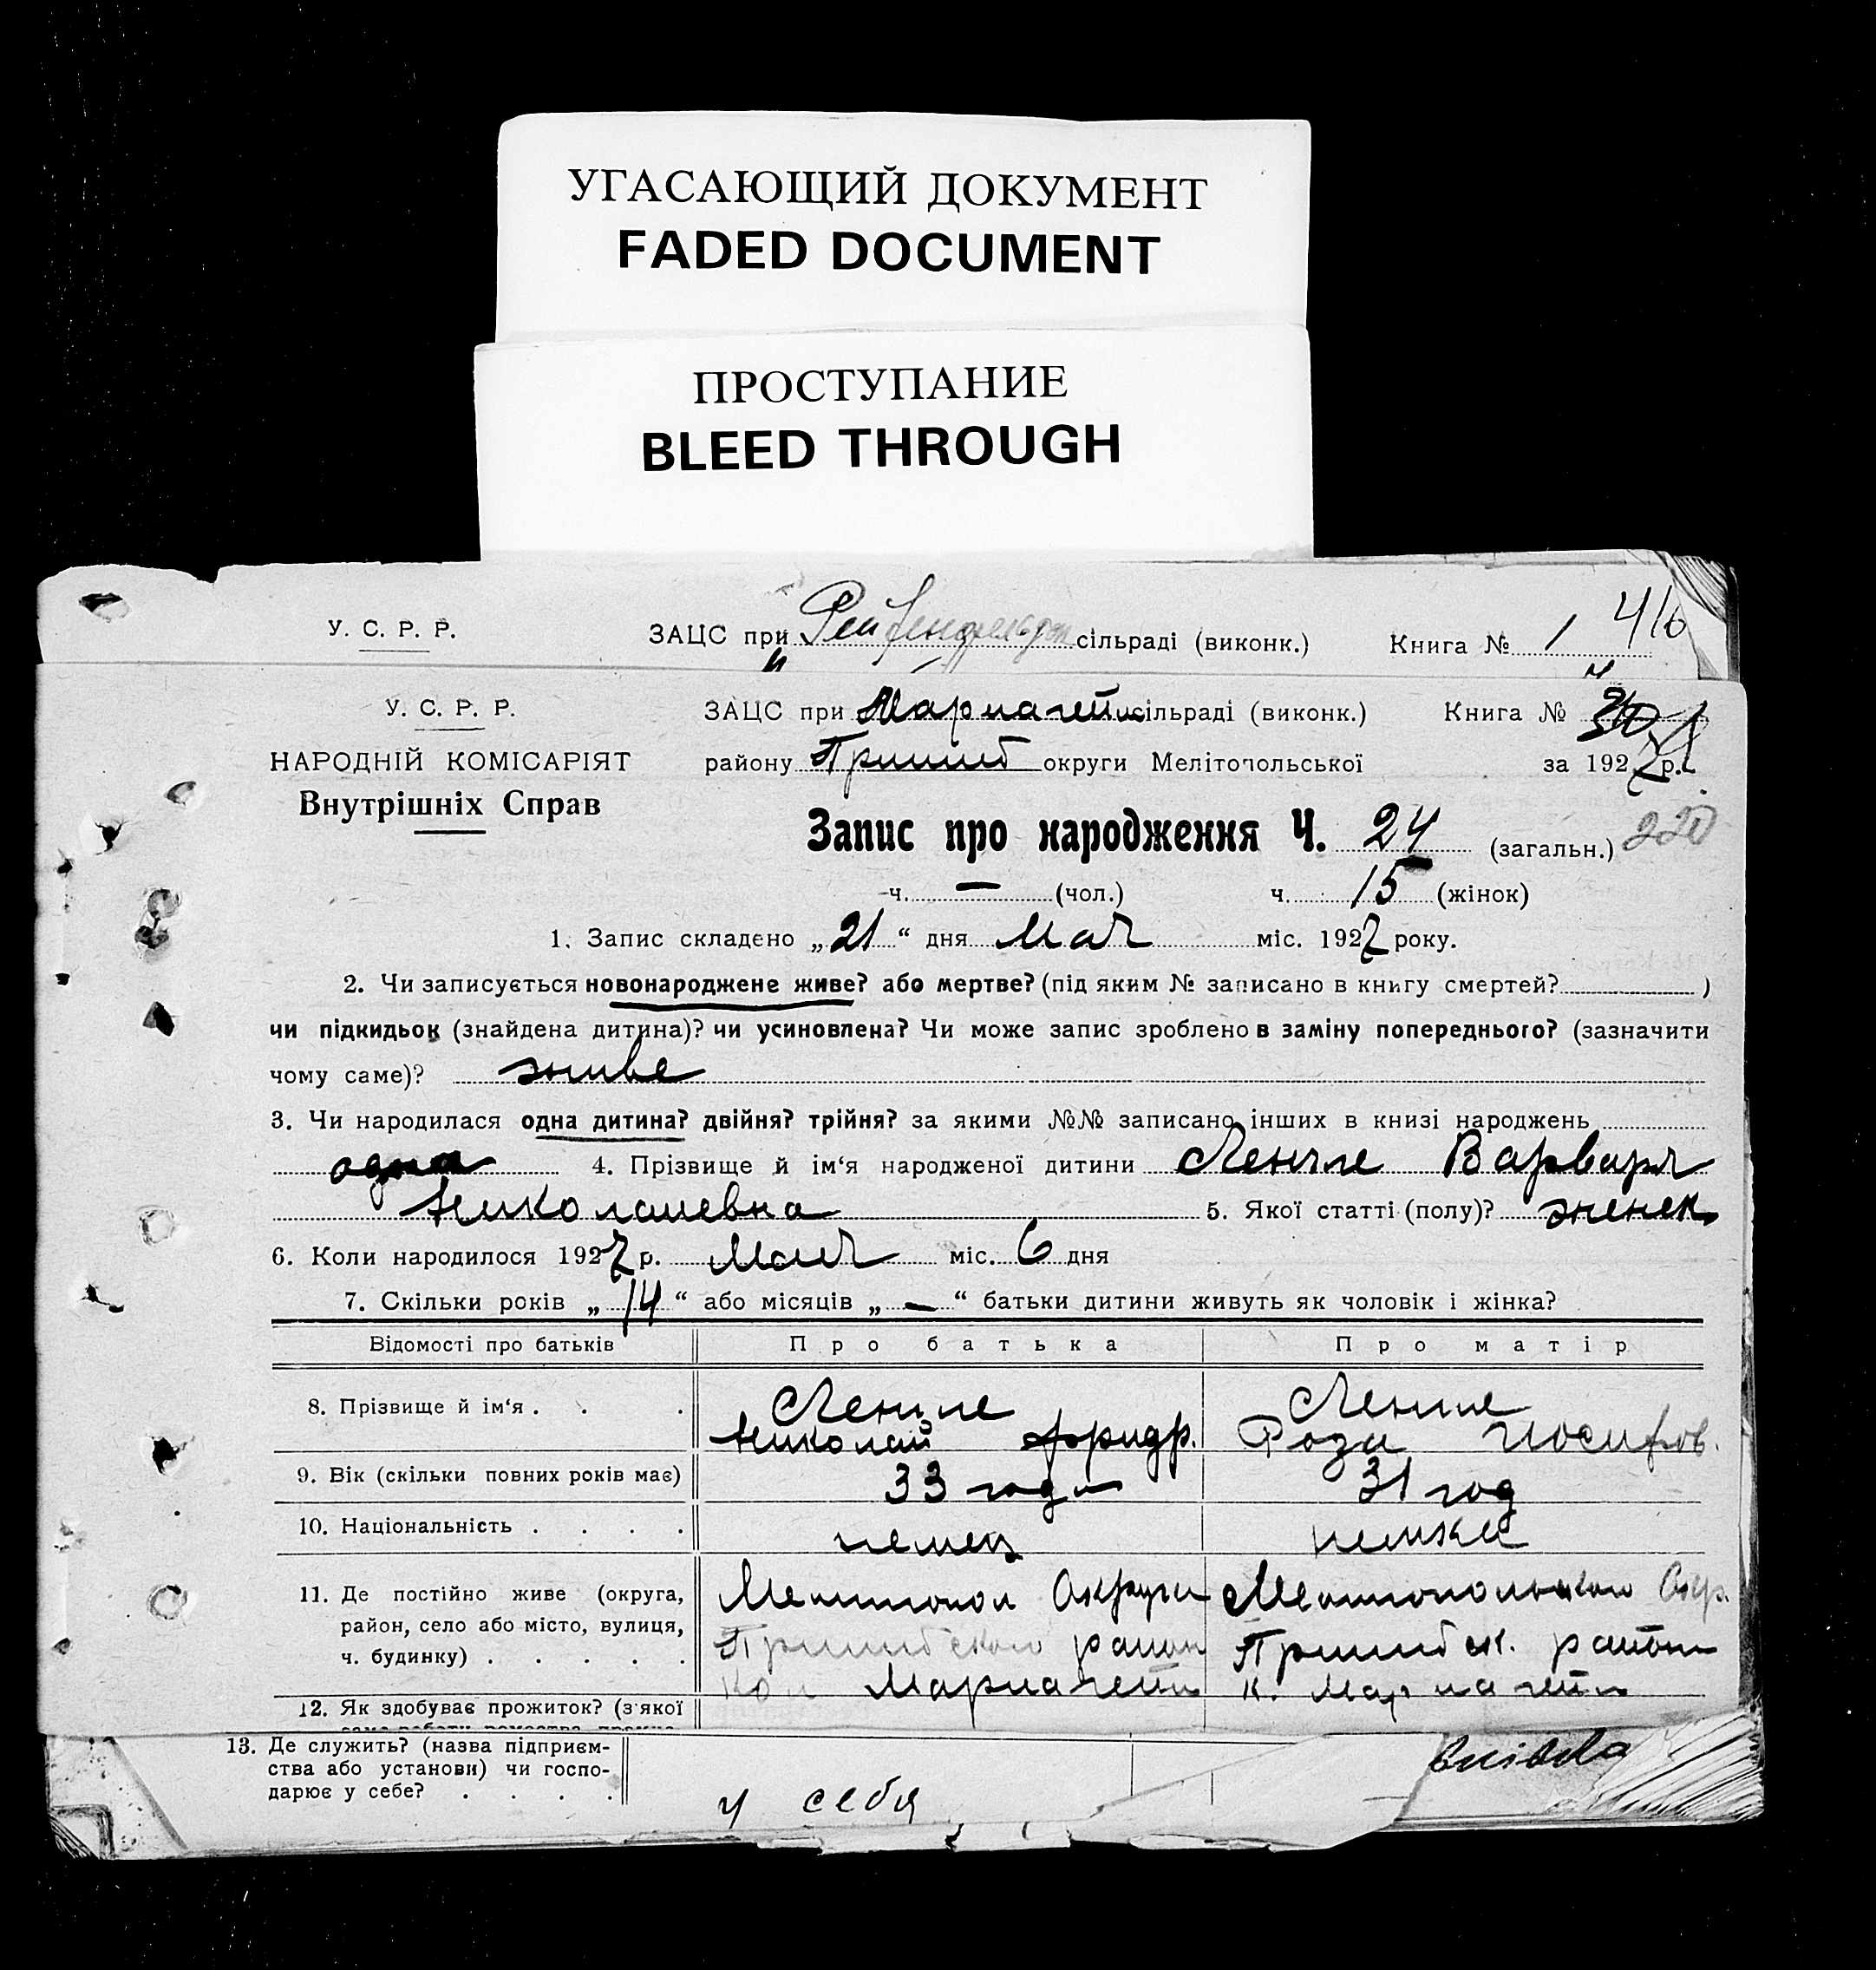 УГАСАЮЩИЙ ДОКУМЕНТ
FADED DOCUMENT
ПРОСТУПАНИЕ
BLEED THROUGH
У. С. Р. Р. ЗАЦС при сільраді (виконк.) Книга № 1 416
У. С. Р. Р. ЗАЦС при Мариагейм сільраді (виконк.) Книга №
НАРОДНІЙ КОМІСАРІЯТ району Пришиб округи Мелітопольської за 1927 р.
Внутрішніх Справ
Запис про народження Ч. 24 (загальн.) 220
ч. — (чол.) ч. 15 (жінок)
1. Запис складено „21“ дня Мая міс. 1927 року.
2. Чи записується новонароджене живе? або мертве? (під яким № записано в книгу смертей? )
чи підкидьок (знайдена дитина)? чи усиновлена? Чи може запис зроблено в заміну попереднього? (зазначити
чому саме)? живе
3. Чи народилася одна дитина? двійня? трійня? за якими №№ записано інших в книзі народжень
одна 4. Прізвище й ім‘я народженої дитини Ленгле Варвара
Николаевна 5. Якої статті (полу)? женск
6. Коли народилося 1927 р. Мая міс. 6 дня
7. Скільки років „14“ або місяців „—“ батьки дитини живуть як чоловік і жінка?
Відомості про батьків Про батька Про матір
8. Прізвище й ім‘я . . . Ленгле Ленгле
Николай Фридр. Роза Иосифов.
9. Вік (скільки повних років має) 33 года 31 год
10. Національність . . . . немец немка
11. Де постійно живе (округа, Мелитопол Округи Мелитопольской Окр.
район, село або місто, вулиця, Пришибского район Пришибск. район
ч. будинку) . . . . . Кол Мариагейм К. Мариагейм
12. Як здобуває прожиток? (з якої
13. Де служить? (назва підприєм-
ства або установи) чи госпо-
дарює у себе? . . . . у себя